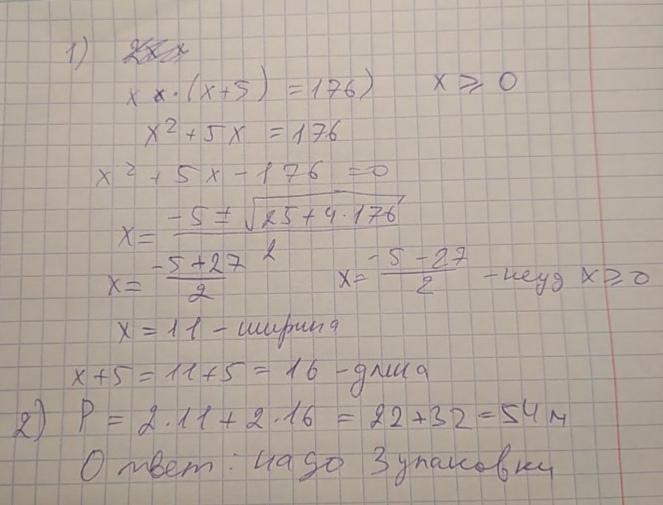 1)
x x·(x+5) = 176) x ≥ 0
x² + 5x = 176
x² + 5x - 176 = 0
x = (-5 ± √(25+4·176)) / 2
x = (-5+27) / 2 x = (-5-27) / 2 - неуд x ≥ 0
x = 11 - ширина
x+5 = 11+5 = 16 - длина
2) P = 2·11 + 2·16 = 22+32 = 54 м
Ответ: надо 3 упаковки